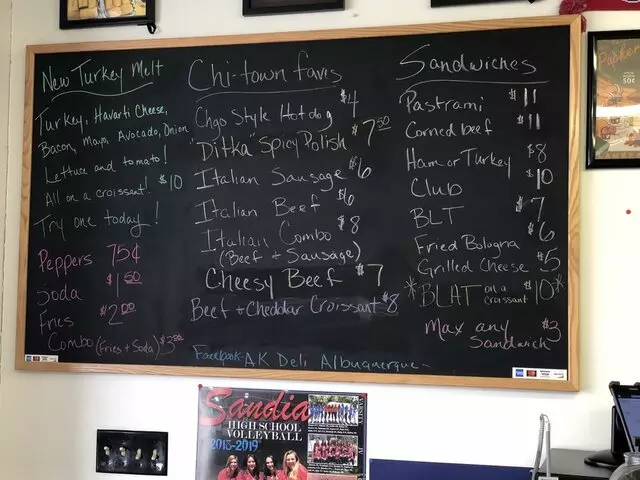 New Turkey Melt
Turkey, Havarti Cheese,
Bacon, Mayo, Avocado, Onion
Lettuce and tomato!
All on a croissant! $10
Try one today!
Peppers 75¢
Soda $1.50
Fries $2.00
Combo (Fries + Soda) $3.00
Chi-town faves
Chgo Style Hotdog $4
"Ditka" Spicy Polish $7.50
Italian Sausage $6
Italian Beef $6
Italian Combo $8
(Beef + Sausage)
Cheesy Beef $7
Beef + Cheddar Croissant $8
Facebook-AK Deli Albuquerque-
Sandwiches
Pastrami $11
Corned beef $11
Ham or Turkey $8
Club $10
BLT $7
Fried Bologna $6
Grilled Cheese $5
*BLAT on a croissant $10*
Max any Sandwich $3
Sandia
HIGH SCHOOL
VOLLEYBALL
2018-2019
VARSITY
50¢